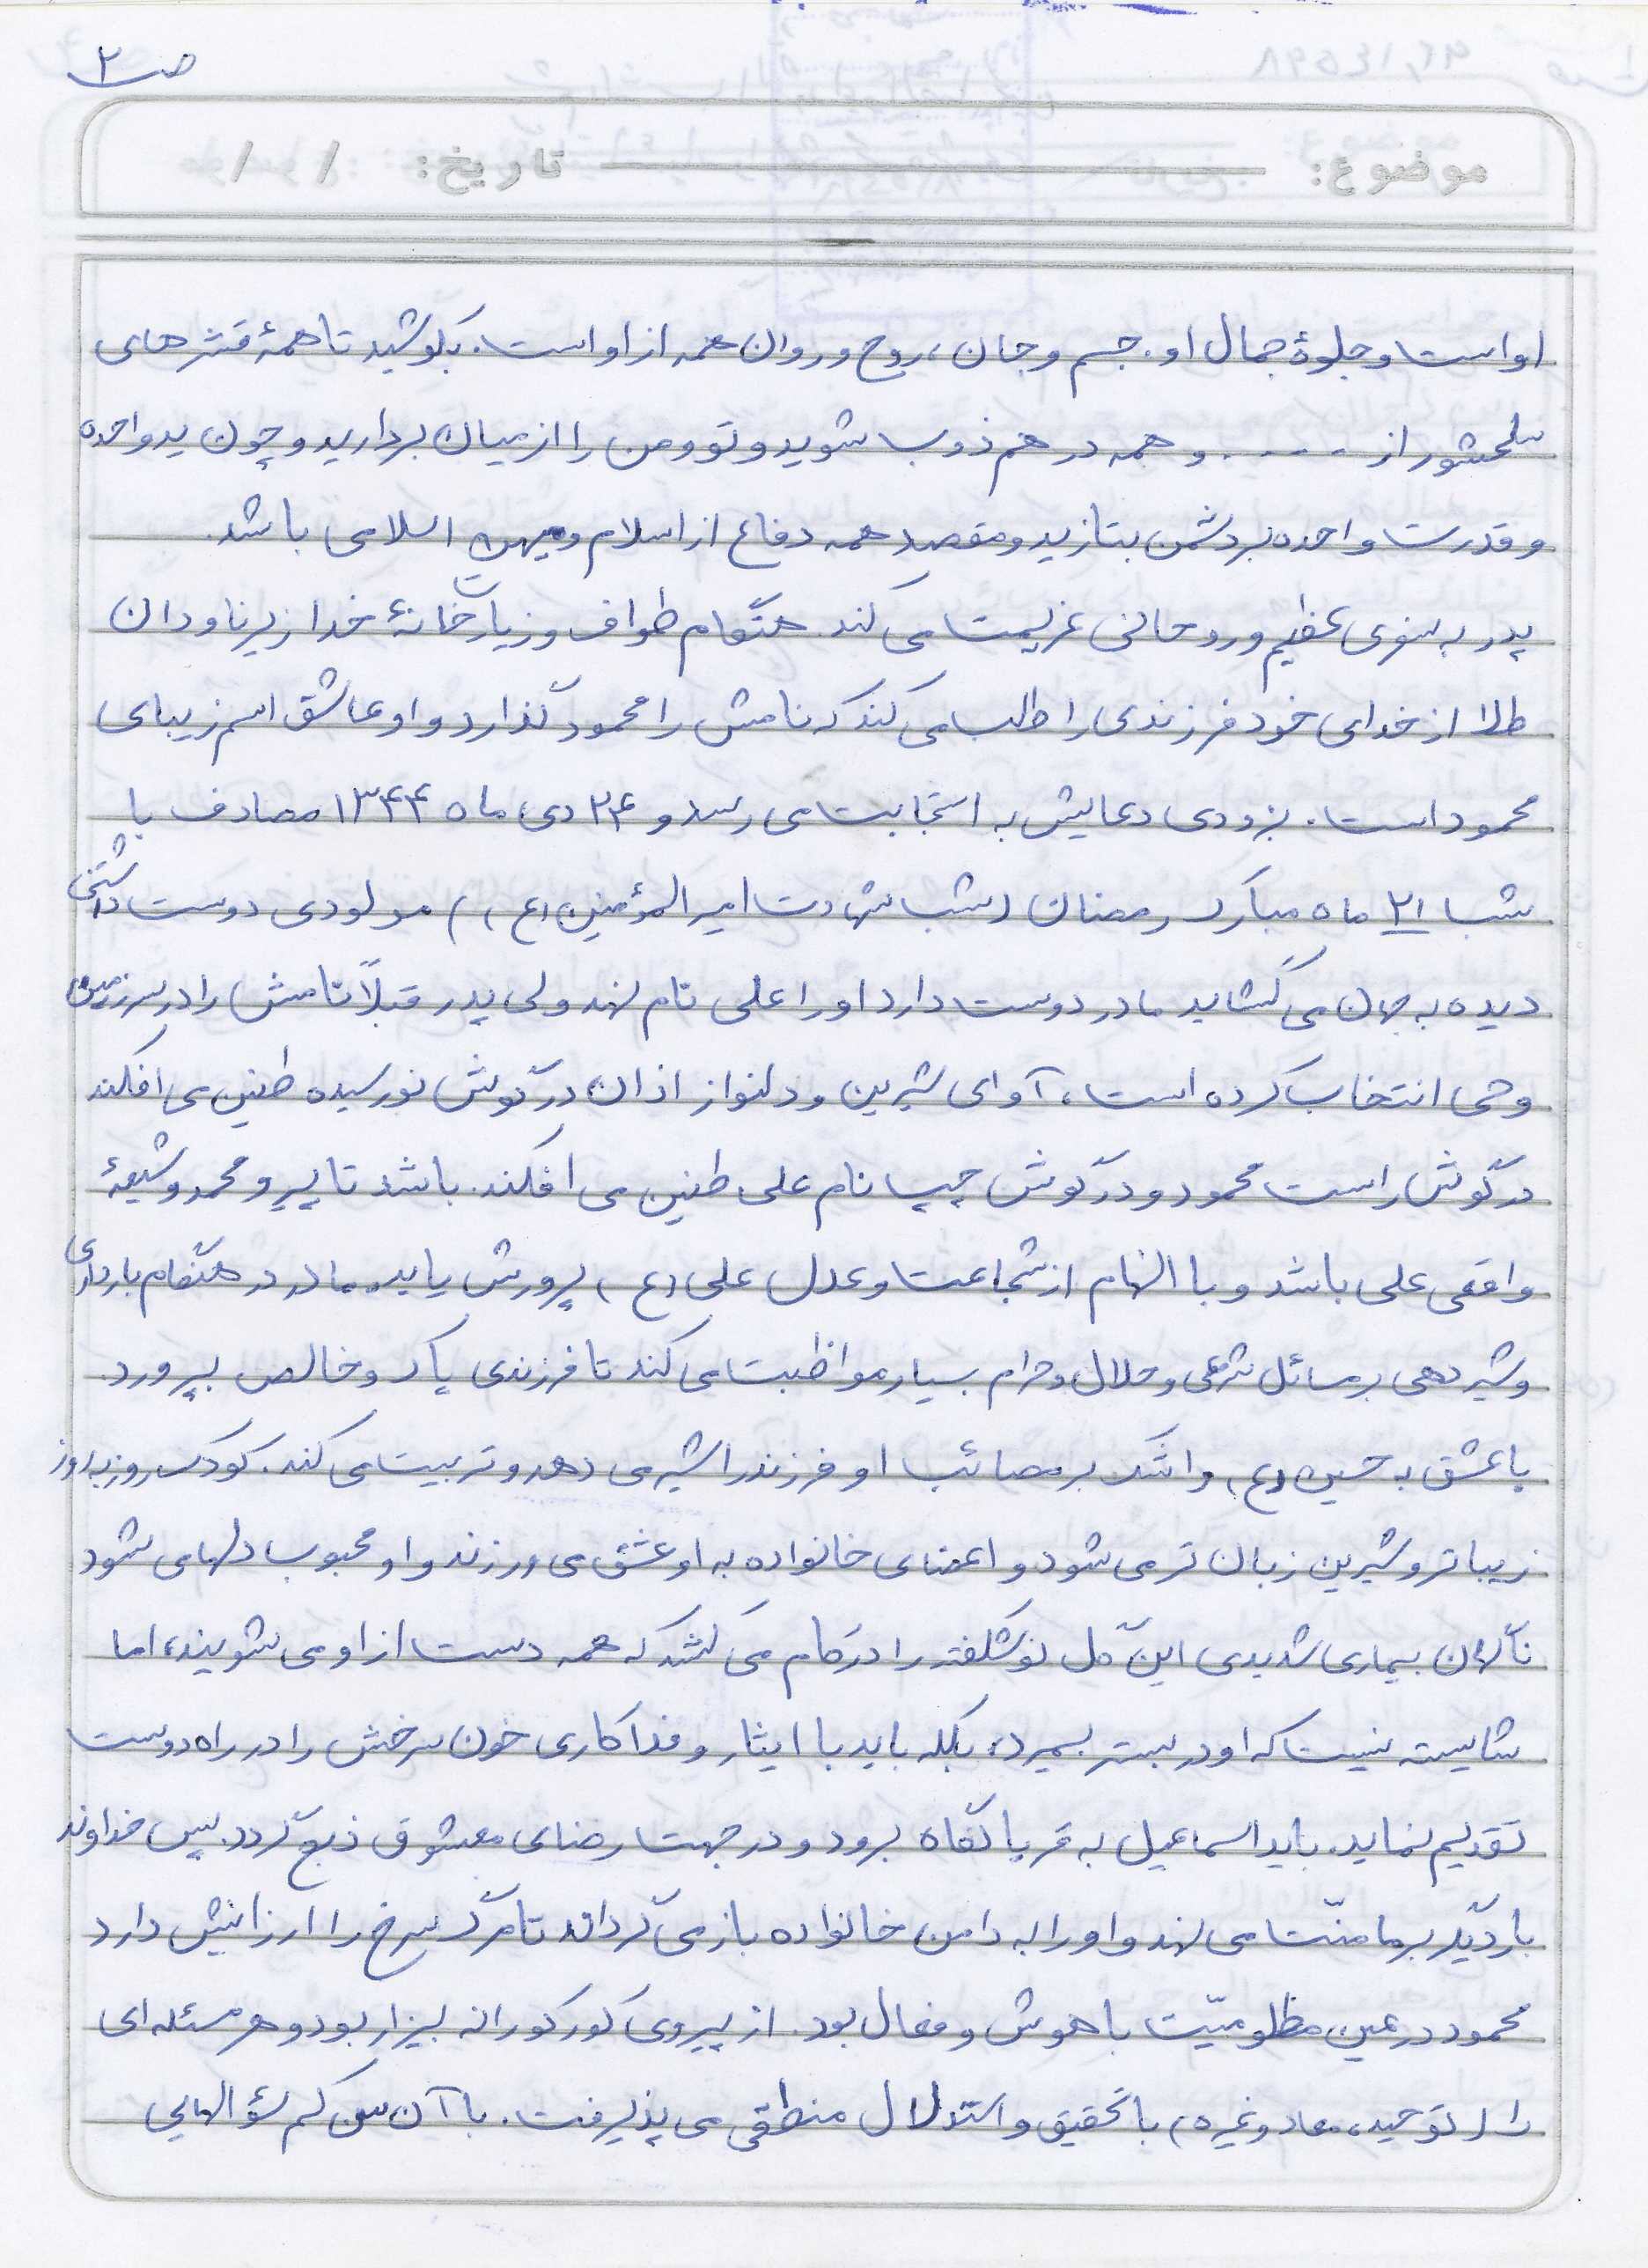 ص ۲
موضوع: تاریخ: / /
او است و جلوهٔ جمال او. جسم و جان، روح و روان همه از او است. بکوشید تا همهٔ قشرهای
سلحشور از ..... و همه در هم ذوب شوید و تو و من را از میان بردارید و چون ید واحده
و قدرت واحده بر دشمن بتازید و مقصد همه دفاع از اسلام و میهن اسلامی باشد.
پدر به سفری عظیم و روحانی عزیمت می کند. هنگام طواف و زیارت خانهٔ خدا زیر ناودان
طلا از خدای خود فرزندی را طلب می کند که نامش را محمود گذارد و او عاشق اسم زیبای
محمود است. بزودی دعایش به استجابت می رسد و ۲۴ دی ماه ۱۳۴۴ مصادف با
شب ۲۱ ماه مبارک رمضان (شب شهادت امیرالمؤمنین (ع)) مولودی دوست داشتنی
دیده به جهان می گشاید مادر دوست دارد او را علی نام نهد ولی پدر قبلاً نامش را در سرزمین
وحی انتخاب کرده است، آوای شیرین و دلنواز اذان در گوش نورسیده طنین می افکند
در گوش راست محمود و در گوش چپ نام علی طنین می افکند. باشد تا پیرو محمد و شیعهٔ
واقعی علی باشد و با الهام از شجاعت و عدل علی (ع) پرورش یابد. مادر در هنگام بارداری
و شیردهی بر مسائل شرعی و حلال و حرام بسیار مواظبت می کند تا فرزندی پاک و خالص بپرورد.
با عشق به حسین (ع) و اشک بر مصائب او فرزند را شیر می دهد و تربیت می کند. کودک روز به روز
زیباتر و شیرین زبان تر می شود و اعضای خانواده به او عشق می ورزند و او محبوب دلها می شود
ناگهان بیماری شدیدی این گل نوشکفته را در کام می کشد که همه دست از او می شویند، اما
شایسته نیست که او در بستر بمیرد، بلکه باید با ایثار و فداکاری خون سرخش را در راه دوست
تقدیم نماید. باید اسماعیل به قربانگاه برود و در جهت رضای معشوق ذبح گردد. پس خداوند
بار دیگر بر ما منّت می نهد و او را به دامن خانواده باز می گرداند تا مرگ سرخ را ارزانیش دارد
محمود در عین مظلومیّت باهوش و فعال بود. از پیروی کورکورانه بیزار بود و هر مسئله ای
را (توحید، معاد و غیره) با تحقیق و استدلال منطقی می پذیرفت. با آن سن کم سؤالهایی